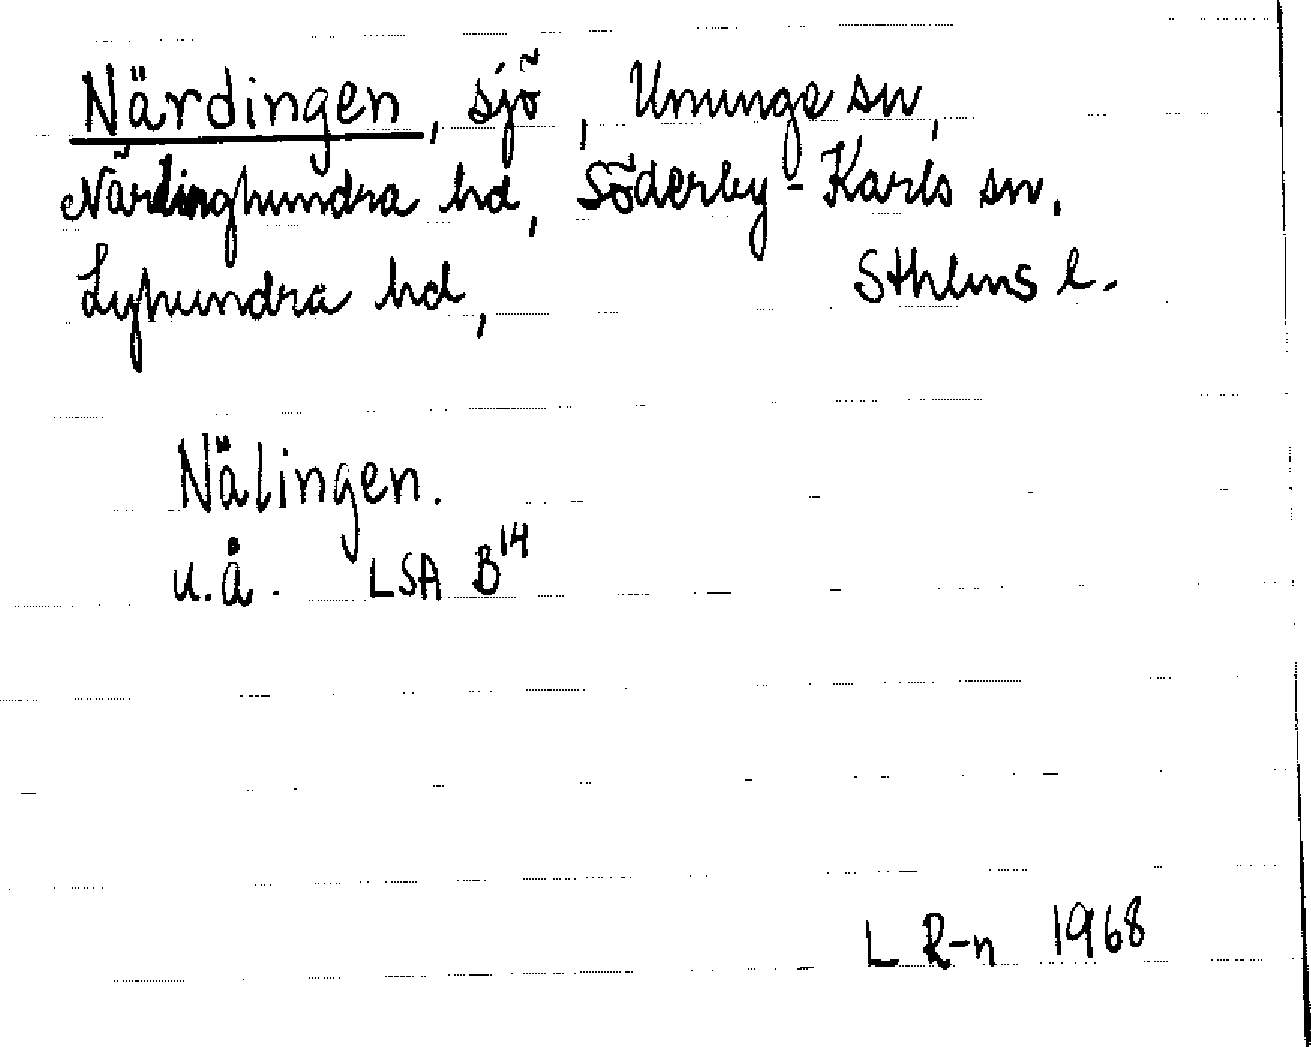 Närdingen, sjö, Ununge sn,
Närdinghundra hd, Söderby-Karls sn,
Lyhundra hd, Sthlms l.
Nälingen.
u.å. LSA B14
L R-n 1968